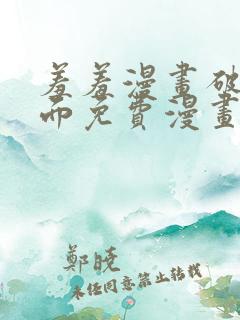 羞羞漫畫破
而免費漫畫
鄭曉
未任同意禁止转载